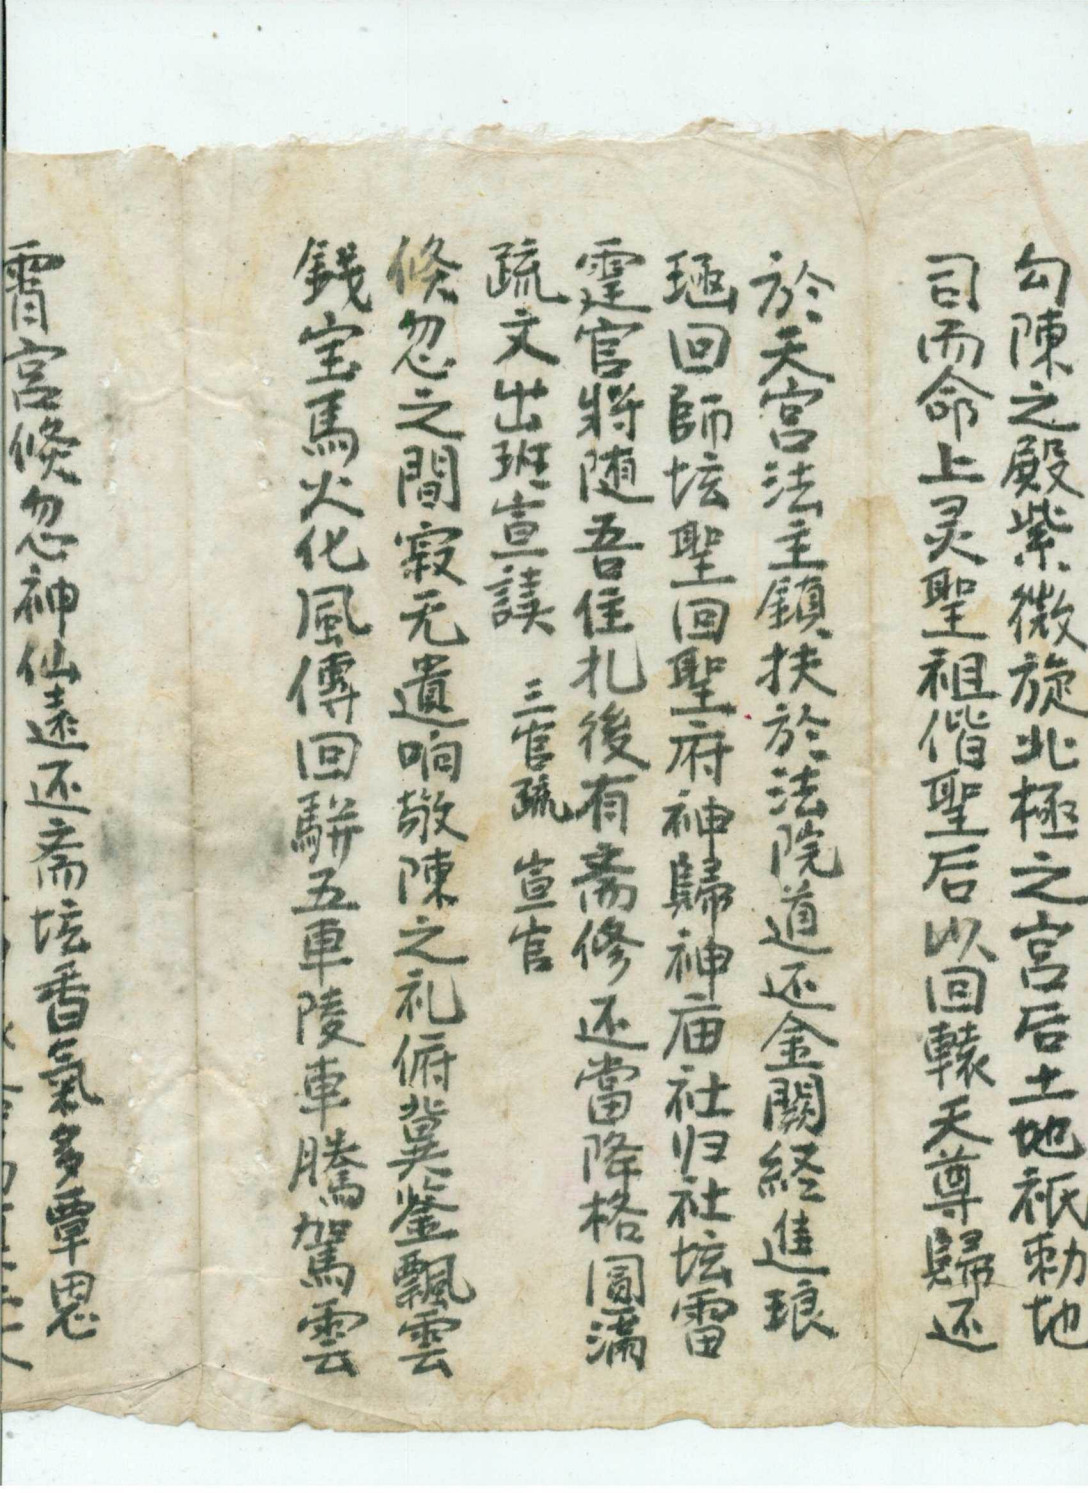 勾陳之殿紫微旋北極之宮后土地祇勅地
司而命上灵聖祖偕聖后以回轅天尊歸还
於天宮法主鎮扶於法院道还金闕経進琅
函回師坛聖回聖府神歸神庙社归社坛雷
霆官将随吾住札後有斋修还當降格圓满
疏文出班宣讀 三官疏 宣官
倏忽之間寂无遺响敬陳之礼俯冀銮飄雲
錢宝馬火化風傳回駢五車陵車騰駕雲
霄宮倏忽神仙遠还斋坛香氣多覃恩